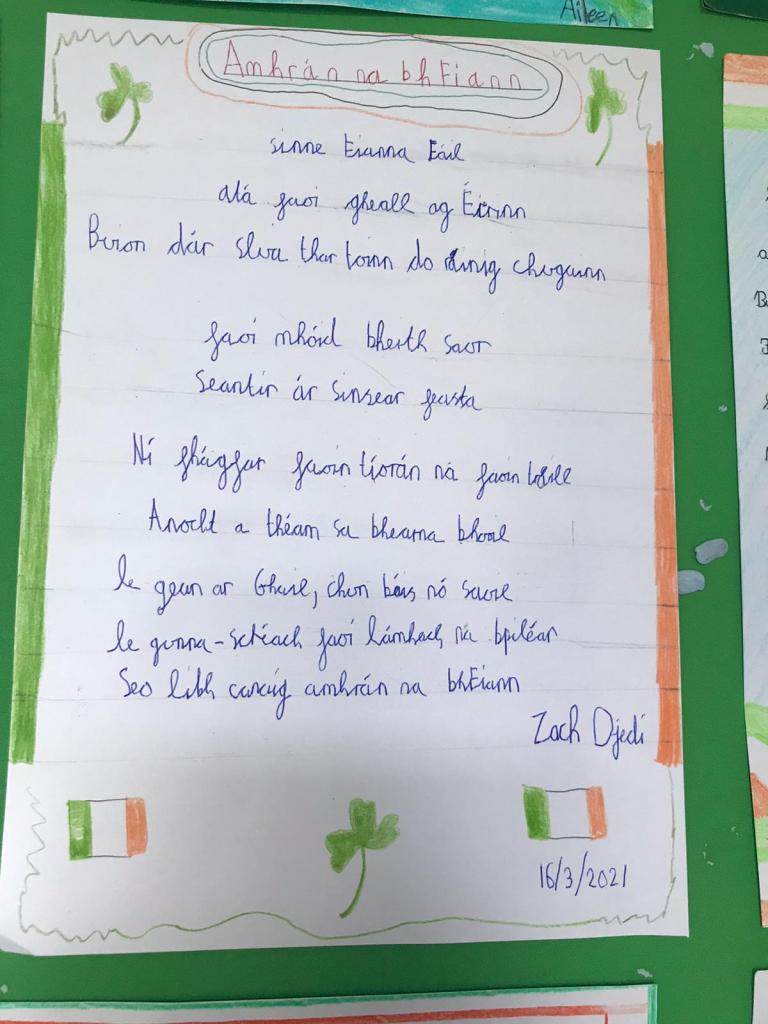 Aileen
Amhrán na bhFiann
sinne Fianna Fáil
atá faoi gheall ag Éirinn
Buíon dár slua thar toinn do ráinig chugainn
faoi mhóid bheith saor
Seantír ár sinsear feasta
Ní fhágfar faoin tíorán ná faoin tráill
Anocht a théam sa bhearna bhaoil
le gean ar Ghaeil, chun báis nó saoil
le gunna-scréach faoi lámhach na bpiléar
Seo libh canaig amhrán na bhFiann
Zach Djedi
16/3/2021